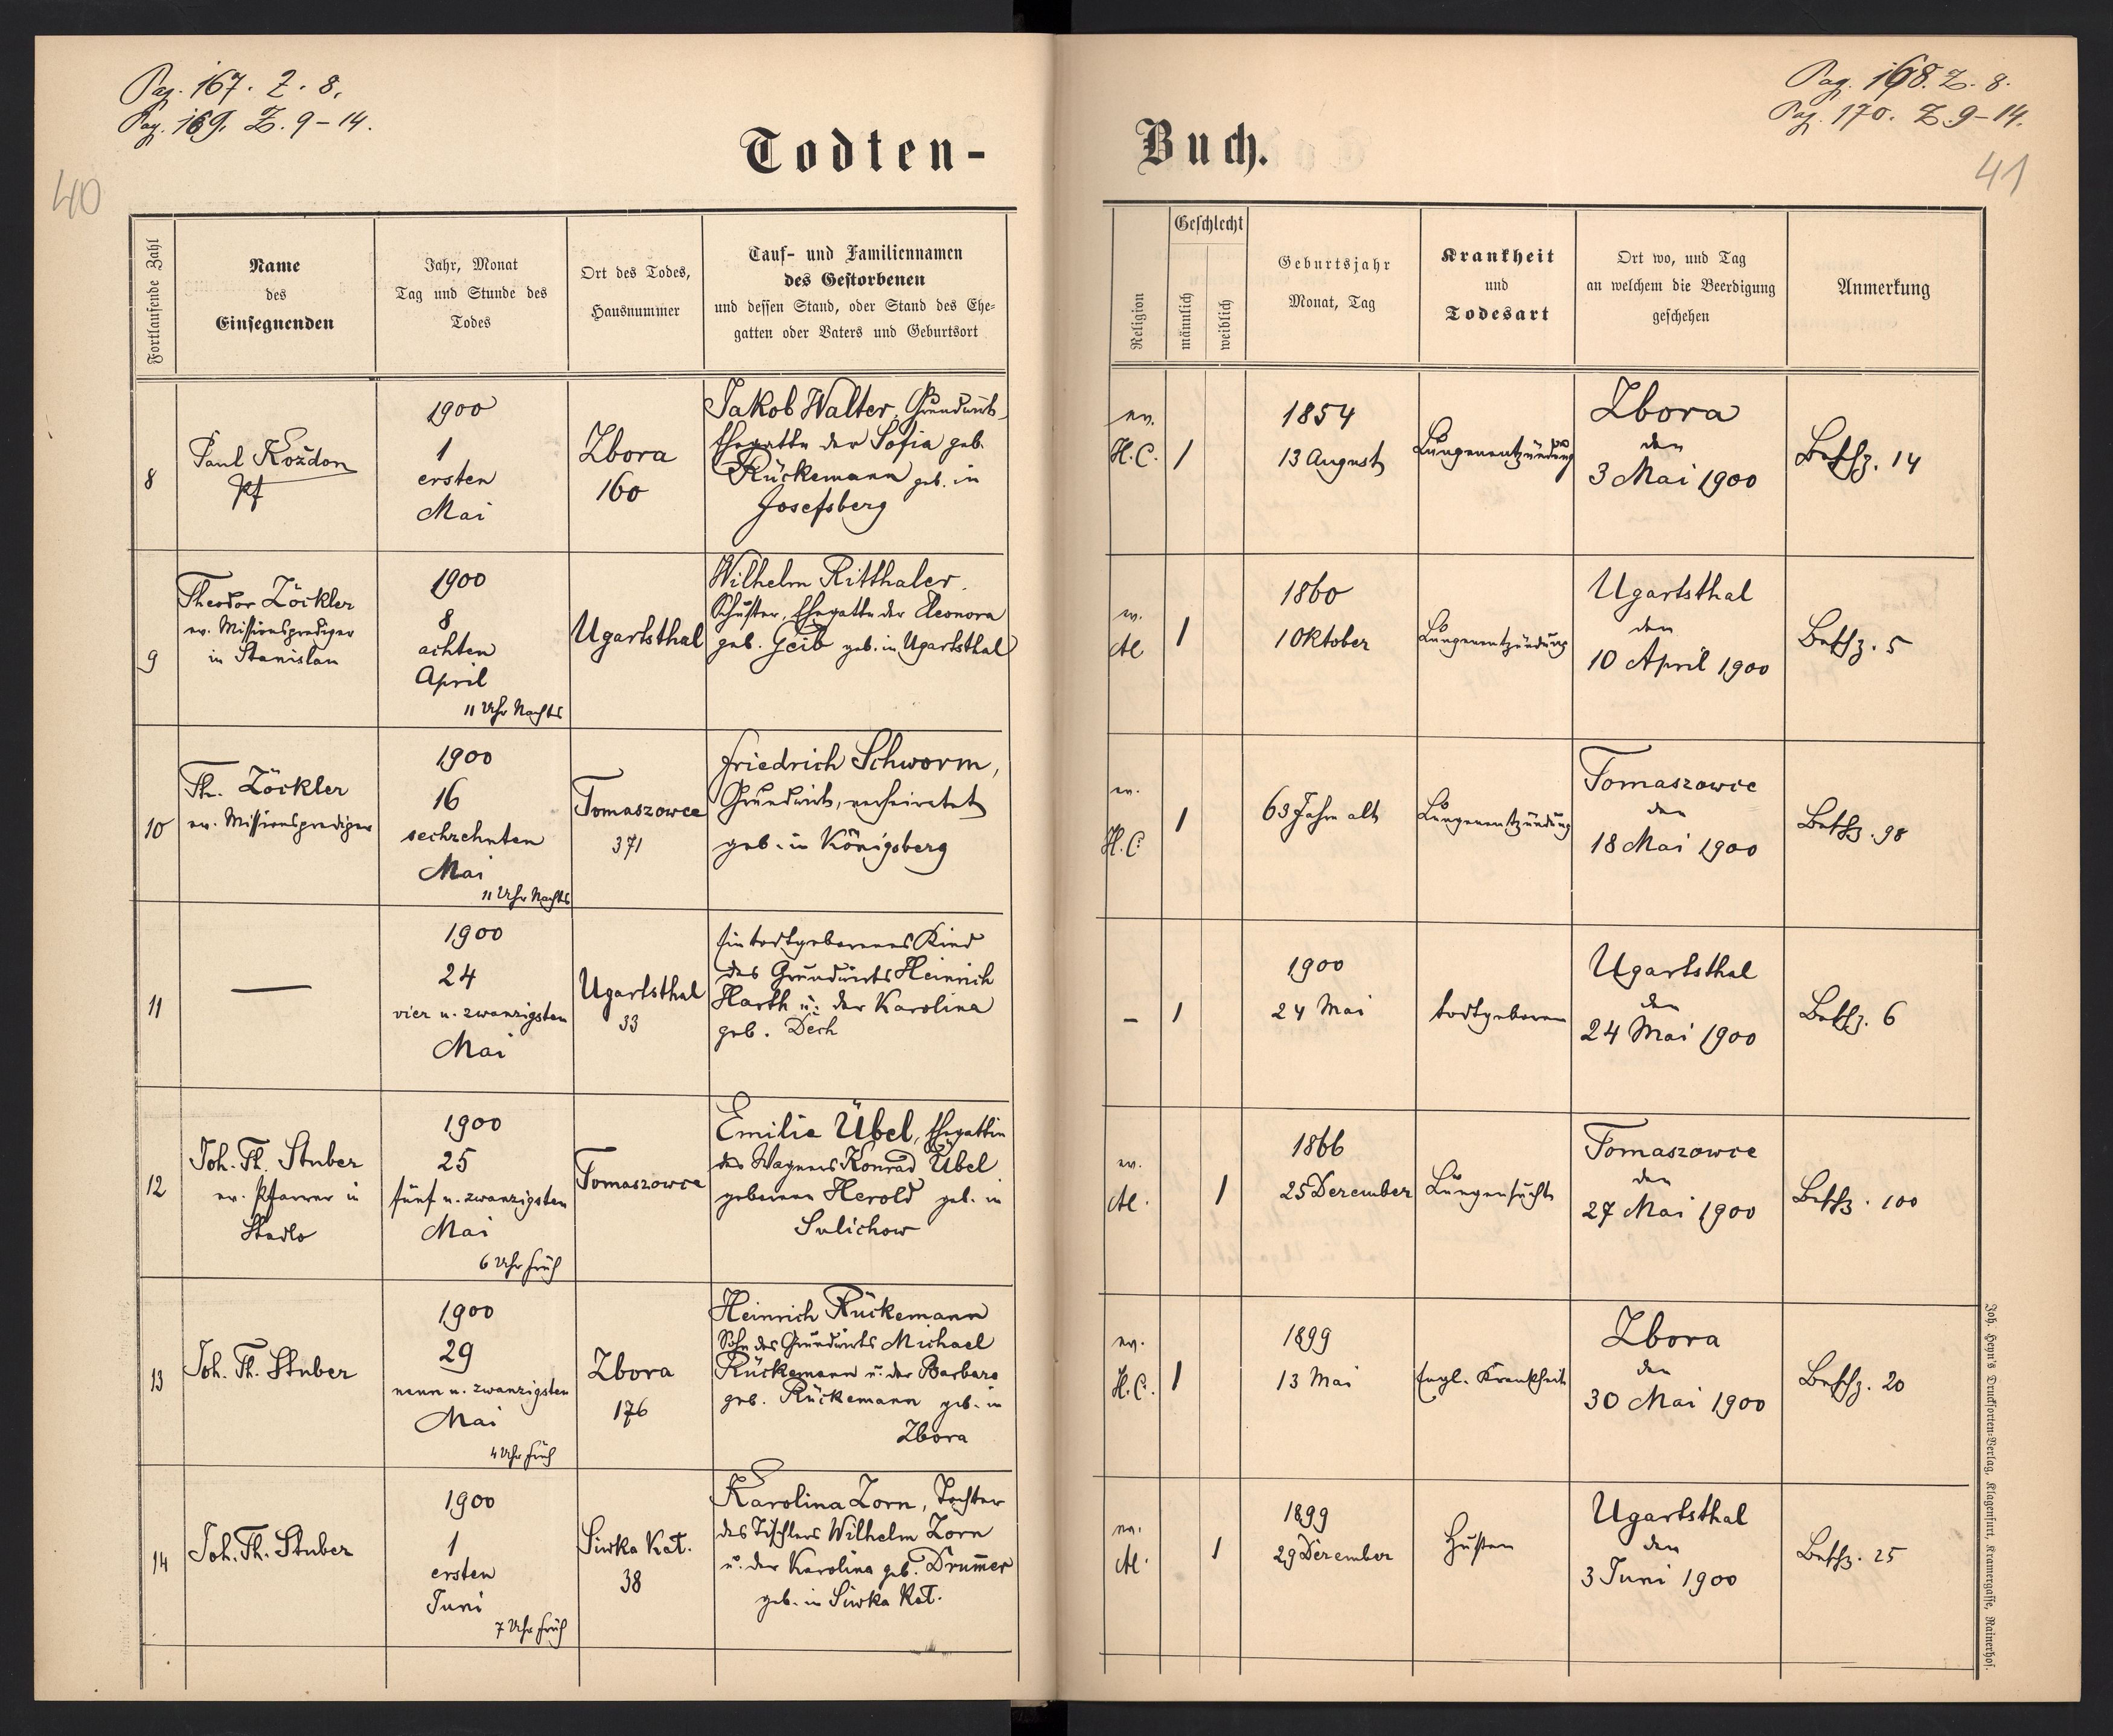 Pag. 167. Z. 8.
Pag. 169. Z. 9-14.
40
Todten-
Fortlaufende Zahl
Name
des
Einsegnenden
Jahr, Monat
Tag und Stunde des
Todes
Ort des Todes,
Hausnummer
Tauf- und Familiennamen
des Gestorbenen
und dessen Stand, oder Stand des Ehe-
gatten oder Vaters und Geburtsort
8
Paul Kożdon
Pf
1900
1
ersten
Mai
Zbora
160
Jakob Walter, Grundwirt,
Ehegatte der Sofia geb.
Rückemann geb. in
Josefsberg
9
Theodor Zöckler
ev. Missionsprediger
in Stanislau
1900
8
achten
April
11 Uhr Nachts
Ugartsthal
Wilhelm Ritthaler,
Schuster, Ehegatte der Eleonora
geb. Geib geb. in Ugartsthal
10
Th. Zöckler
ev. Missionsprediger
1900
16
sechzehnten
Mai
11 Uhr Nachts
Tomaszowce
371
Friedrich Schworm,
Grundwirt, verheiratet
geb. in Königsberg
11
—
1900
24
vier u. zwanzigsten
Mai
Ugartsthal
33
Ein todtgeborenes Kind
des Grundwirts Heinrich
Harth u. der Karolina
geb. Dech
12
Joh. Th. Stuber
ev. Pfarrer in
Stadlo
1900
25
fünf u. zwanzigsten
Mai
6 Uhr früh
Tomaszowce
Emilie Übel, Ehegattin
des Wagners Konrad Übel
geborene Herold geb. in
Sulichow
13
Joh. Th. Stuber
1900
29
neun u. zwanzigsten
Mai
4 Uhr früh
Zbora
176
Heinrich Rückemann
Sohn des Grundwirts Michael
Rückemann u. der Barbara
geb. Rückemann geb. in
Zbora
14
Joh. Th. Stuber
1900
1
ersten
Juni
7 Uhr früh
Siwka Kat.
38
Karolina Zorn, Tochter
des Tischlers Wilhelm Zorn
u. der Karolina geb. Drum̄er
geb. in Siwka Kat.
Pag. 168. Z. 8.
Pag. 170. Z. 9-14.
41
Buch.
Religion
Geschlecht
männlich
weiblich
Geburtsjahr
Monat, Tag
Krankheit
und
Todesart
Ort wo, und Tag
an welchem die Beerdigung
geschehen
Anmerkung
ev.
H.C.
1
1854
13 August
Lungenentzündung
Zbora
den
3 Mai 1900
Betfz. 14
ev.
AC
1
1860
1 Oktober
Lungenentzündung
Ugartsthal
den
10 April 1900
Betfz. 5
ev.
H.C.
1
63 Jahre alt
Lungenentzündung
Tomaszowce
den
18 Mai 1900
Betfz. 98
–
1
1900
24 Mai
todtgeboren
Ugartsthal
den
24 Mai 1900
Betfz. 6
ev.
AC.
1
1866
25 Dezember
Lungensucht
Tomaszowce
den
27 Mai 1900
Betfz. 100
ev.
H.C.
1
1899
13 Mai
Engl. Krankheit
Zbora
den
30 Mai 1900
Betfz. 20
ev.
AC.
1
1899
29 Dezember
Husten
Ugartsthal
den
3 Juni 1900
Betfz. 25
Joh. Heyn's Drucksorten-Verlag, Klagenfurt, Kramergasse, Rainerhof.